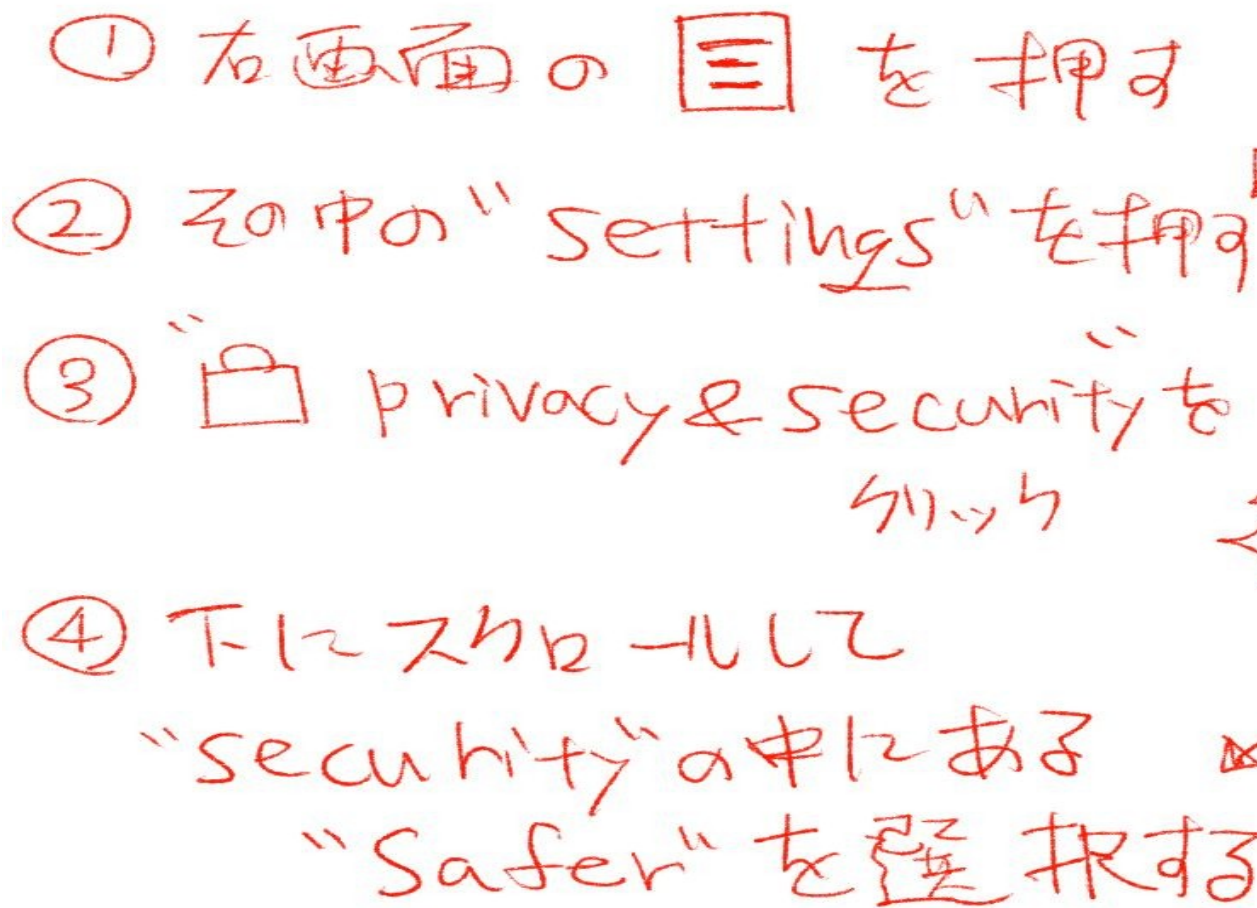 ① 右画面の を押す
② その中の"settings"を押す
③ " privacy&security"を
クリック
④ 下にスクロールして
"security"の中にある
"Safer"を選択する